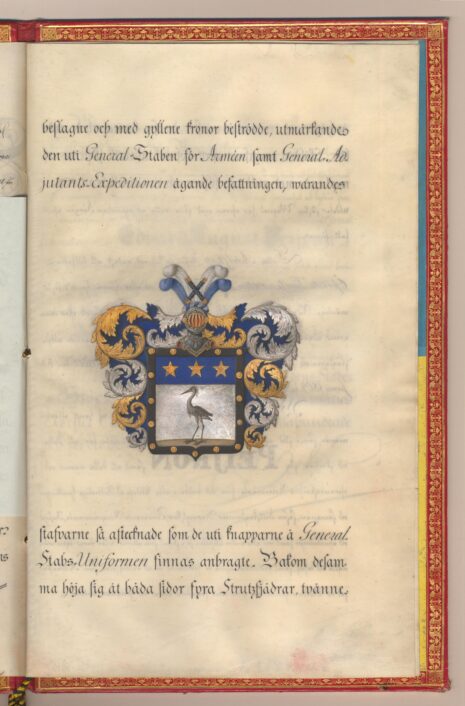 beslagne och med gyllene kronor beströdde, utmärkande
den uti General-Staben för Armèen samt General-Ad-
jutants-Expeditionen ägande befattningen, warandes
stafvarne så afteknade som de uti knapparne å General
Stabs-Uniformen finnas anbragte. Bakom desam-
ma höja sig åt båda sidor fyra Strutzfjädrar, tvänne